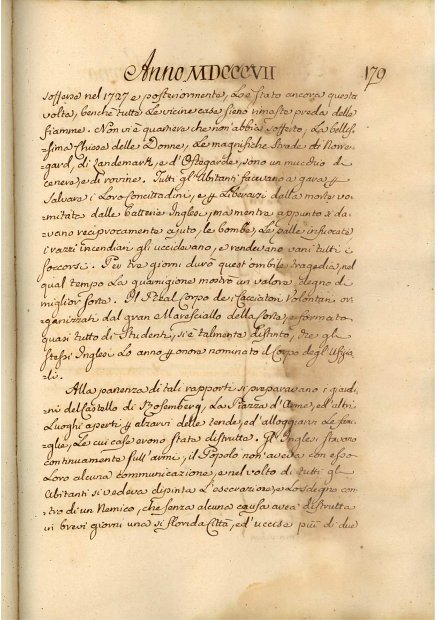 Anno MDCCCVII
179
sofferse nel 1727 e posteriormente, lo è stato ancora questa
volta, benchè tutte le vicine case sieno rimaste preda delle
fiamme. Non vi è quartiere che non abbia sofferto, La bellis-
sima Chiesa delle Donne, Le magnifiche strade di Norre-
gard, di Landemark, e d'Ostegarde, sono un mucchio di
cenere, e di rovine. Tutti gli Abitanti facevano a gara p
salvare i Loro Concittadini, e p liberarsi dalla morte vo-
mitata dalle batterie Inglesi, ma mentre appunto si da-
vano reciprocamente ajuto, le bombe, Le palle infuocate
i razzi incendiari gli uccidevano, e rendevano vani tutti i
soccorsi. Per tre giorni durò quest'orribile tragedia, nel
qual tempo La guarnigione mostrò un valore degno di
miglior sorte. Il Real Corpo de i Cacciatori Volontari or-
ganizzati dal gran Maresciallo della Corte, e formato
quasi tutto di Studenti, si è talmente distinto, che gli
stessi Inglesi Lo anno p onore nominato il Corpo degl' Uffizia-
li.
Alla partenza di tali rapporti si preparavano i giardi-
ni del Castello di Rosemberg, La Piazza d'Arme, ed altri
Luoghi aperti p alzarvi delle tende, ed alloggiarvi Le fami-
glie, Le cui case erono state distrutte. Gl' Inglesi stavano
continuamente sull'armi, il Popolo non aveva con esso
Loro alcuna comunicazione, e nel volto di tutti gli
Abitanti si vedeva dipinta L'esecrazione, e Lo sdegno con-
tro di un Nemico, che senza alcuna causa avea distrutta
in brevi giorni una sì florida Città, ed uccise più di due